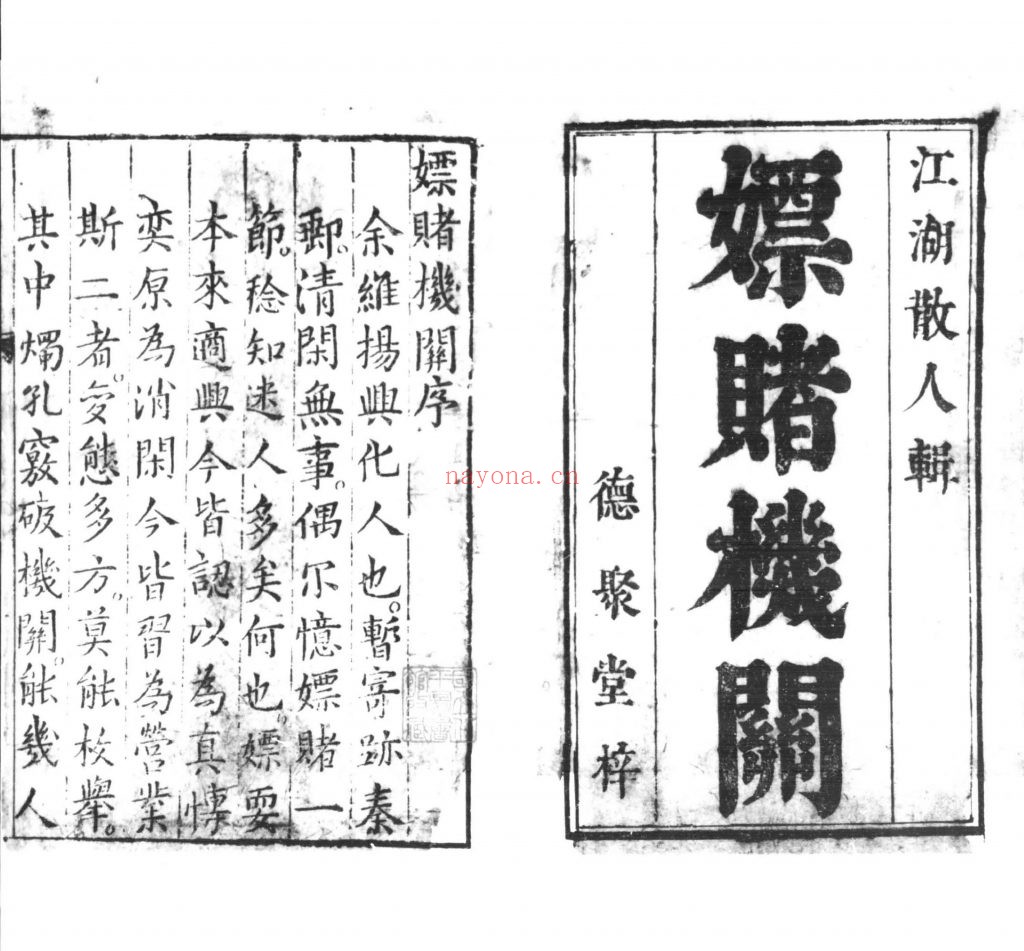 江湖散人輯
嫖賭機關
德聚堂梓
嫖賭機關序
余維揚興化人也。暫寄跡秦
郵。清閑無事。偶尔憶嫖賭一
節。稔知迷人多矣何也。嫖耍
本來適興今皆認以為真情
奕原為消閑今皆習為營業
斯二者。变態多方。莫能枚舉。
其中燭孔竅破機關。能幾人
nayona.cn